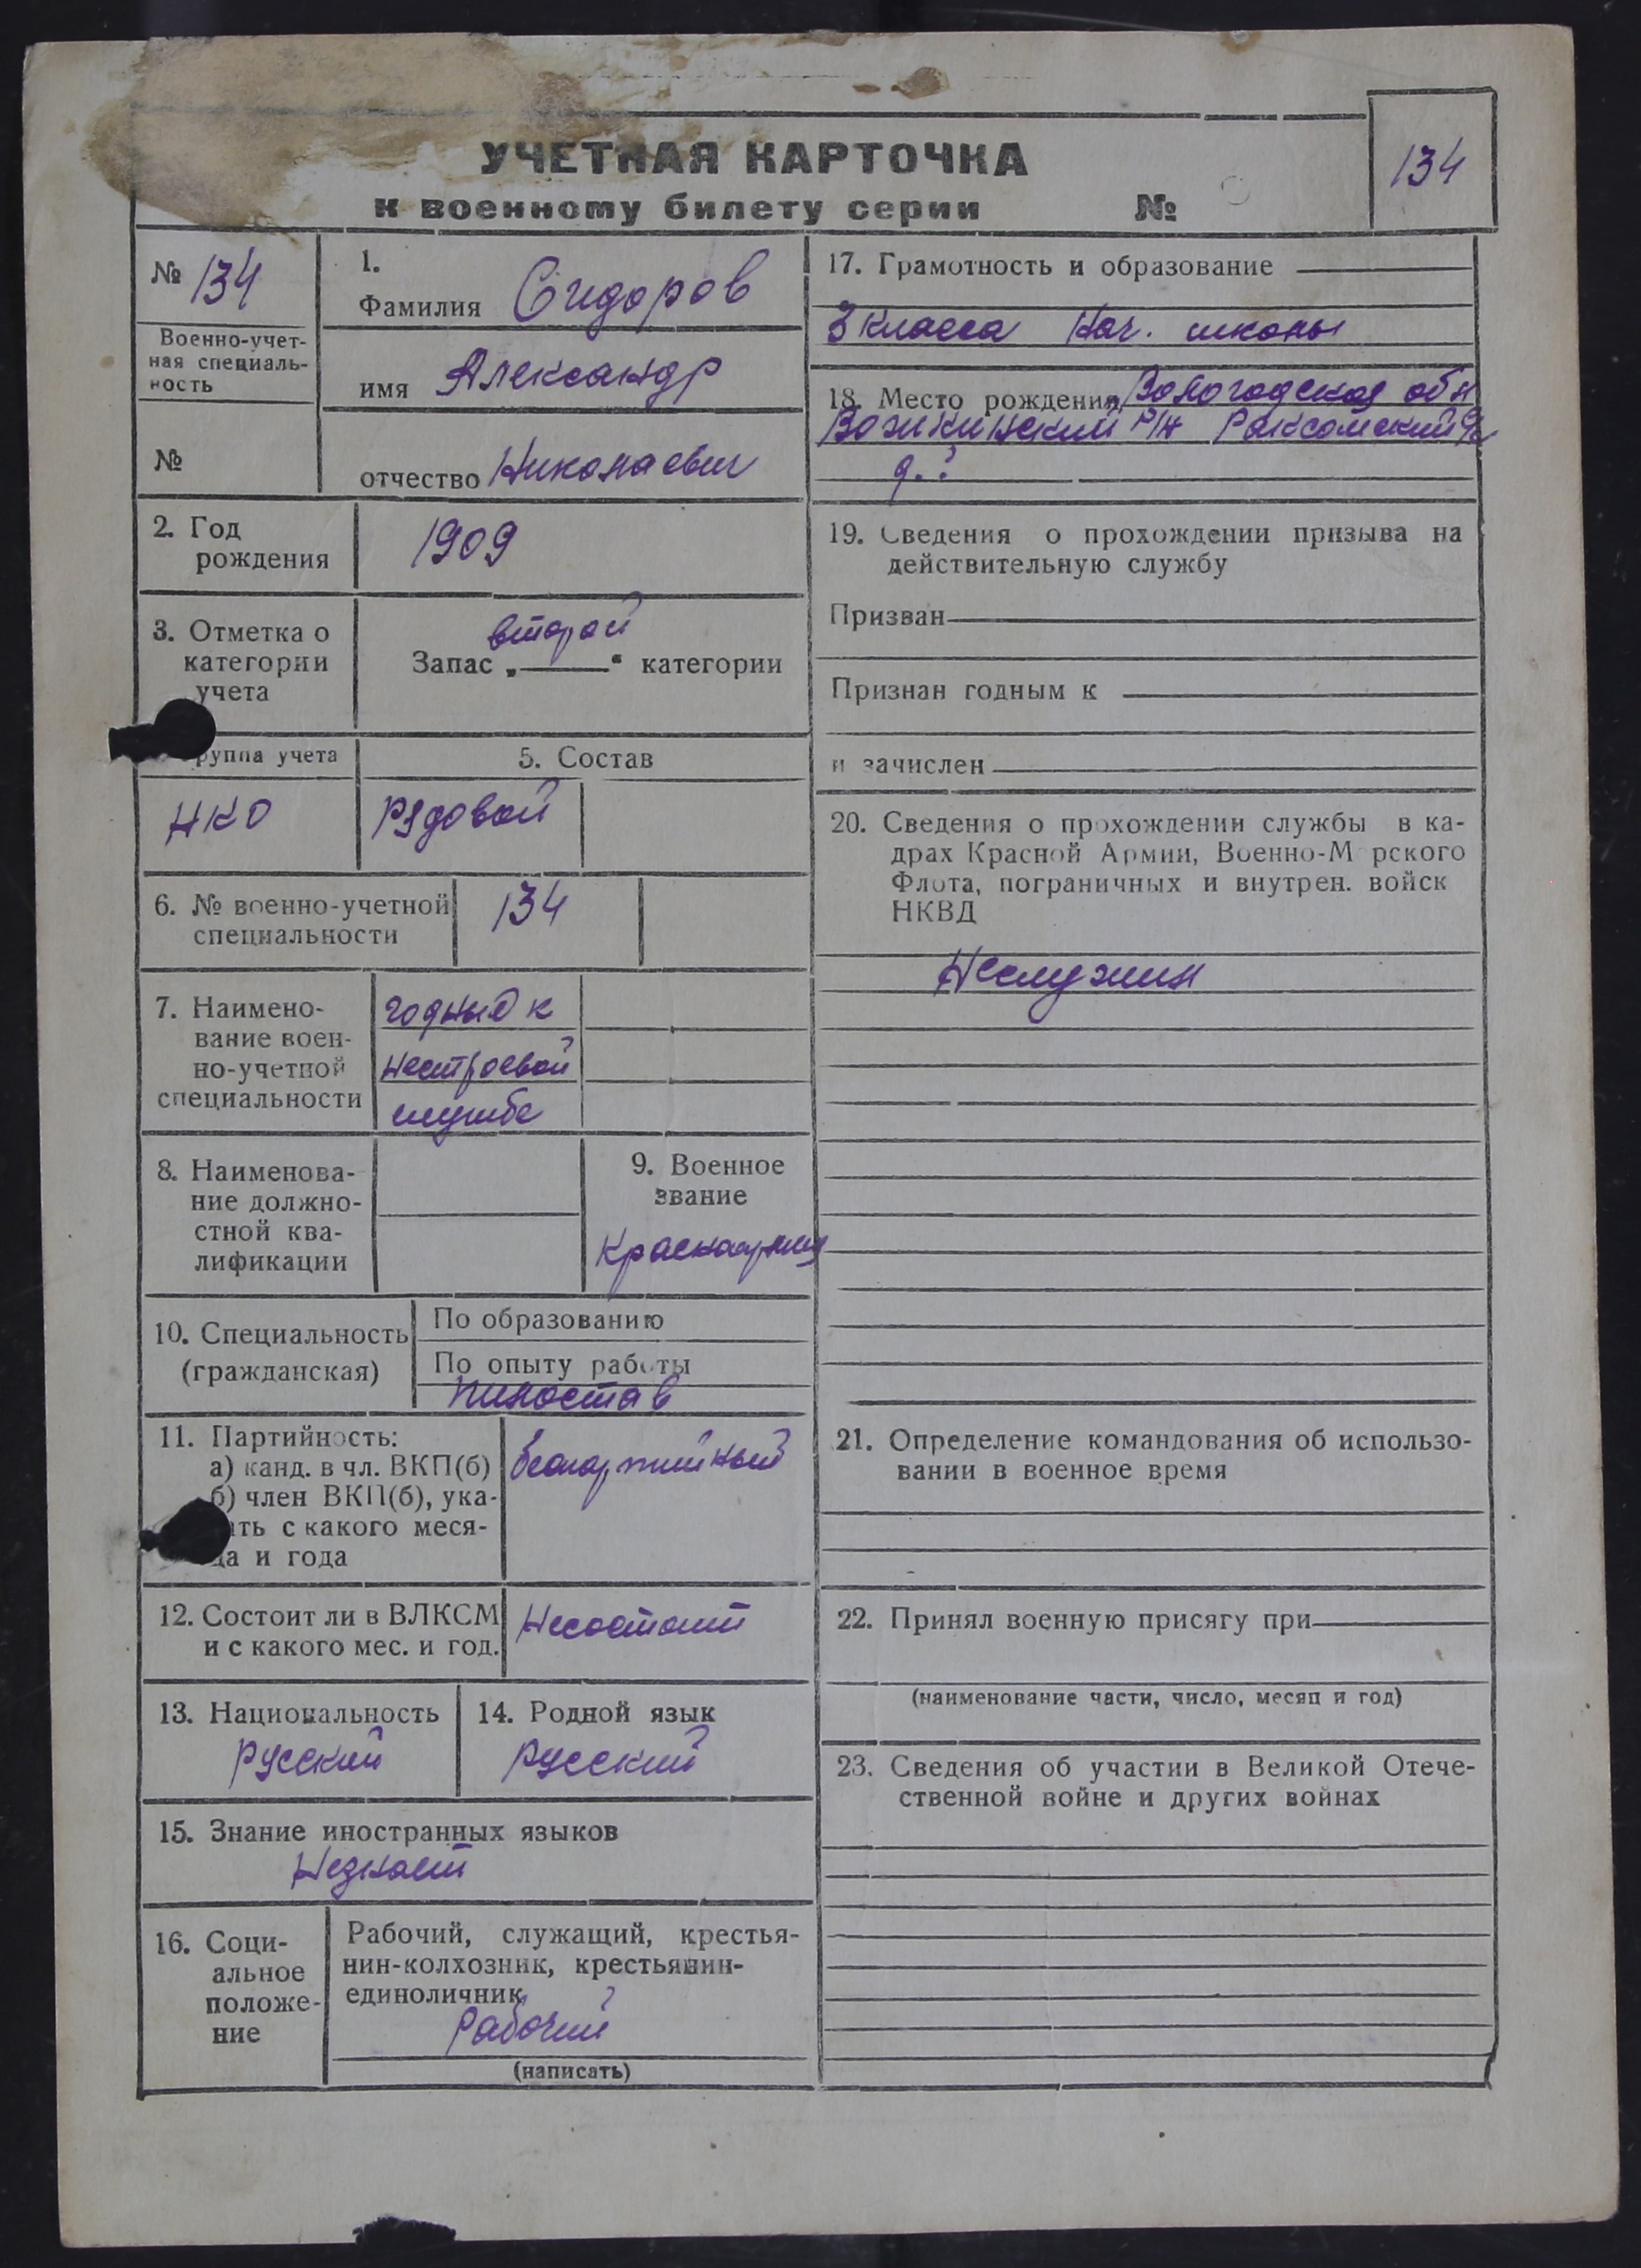 УЧЕТНАЯ КАРТОЧКА
к военному билету серии №
134
№ 134
Военно-учет-
ная специаль-
ность
№
1.
Фамилия Сидоров
имя Александр
отчество Николаевич
2. Год
рождения
1909
3. Отметка о
категории
учета
второй
Запас „ “ категории
руппа учета
НКО
5. Состав
Рядовой
6. № военно-учетной
специальности
134
7. Наимено-
вание воен-
но-учетной
специальности
годный к
нестроевой
службе
8. Наименова-
ние должно-
стной ква-
лификации
9. Военное
звание
Красноармеец
10. Специальность
(гражданская)
По образованию
По опыту работы
пилостав
11. Партийность:
а) канд. в чл. ВКП(б)
б) член ВКП(б), ука-
ать с какого меся-
ца и года
беспартийный
12. Состоит ли в ВЛКСМ
и с какого мес. и год.
Несостоит
13. Национальность
Русский
14. Родной язык
Русский
15. Знание иностранных языков
Незнает
16. Соци-
альное
положе-
ние
Рабочий, служащий, крестья-
нин-колхозник, крестьянин-
единоличник
Рабочий
(написать)
17. Грамотность и образование
3 класса нач. школы
18. Место рождения Вологодская обл
р/н Раксомский с/с
д. ?
19. Сведения о прохождении призыва на
действительную службу
Призван
Признан годным к
и зачислен
20. Сведения о прохождении службы в ка-
драх Красной Армии, Военно-М рского
Флота, пограничных и внутрен. войск
НКВД
Неслужил
21. Определение командования об использо-
вании в военное время
22. Принял военную присягу при
(наименование части, число, месяц и год)
23. Сведения об участии в Великой Отече-
ственной войне и других войнах